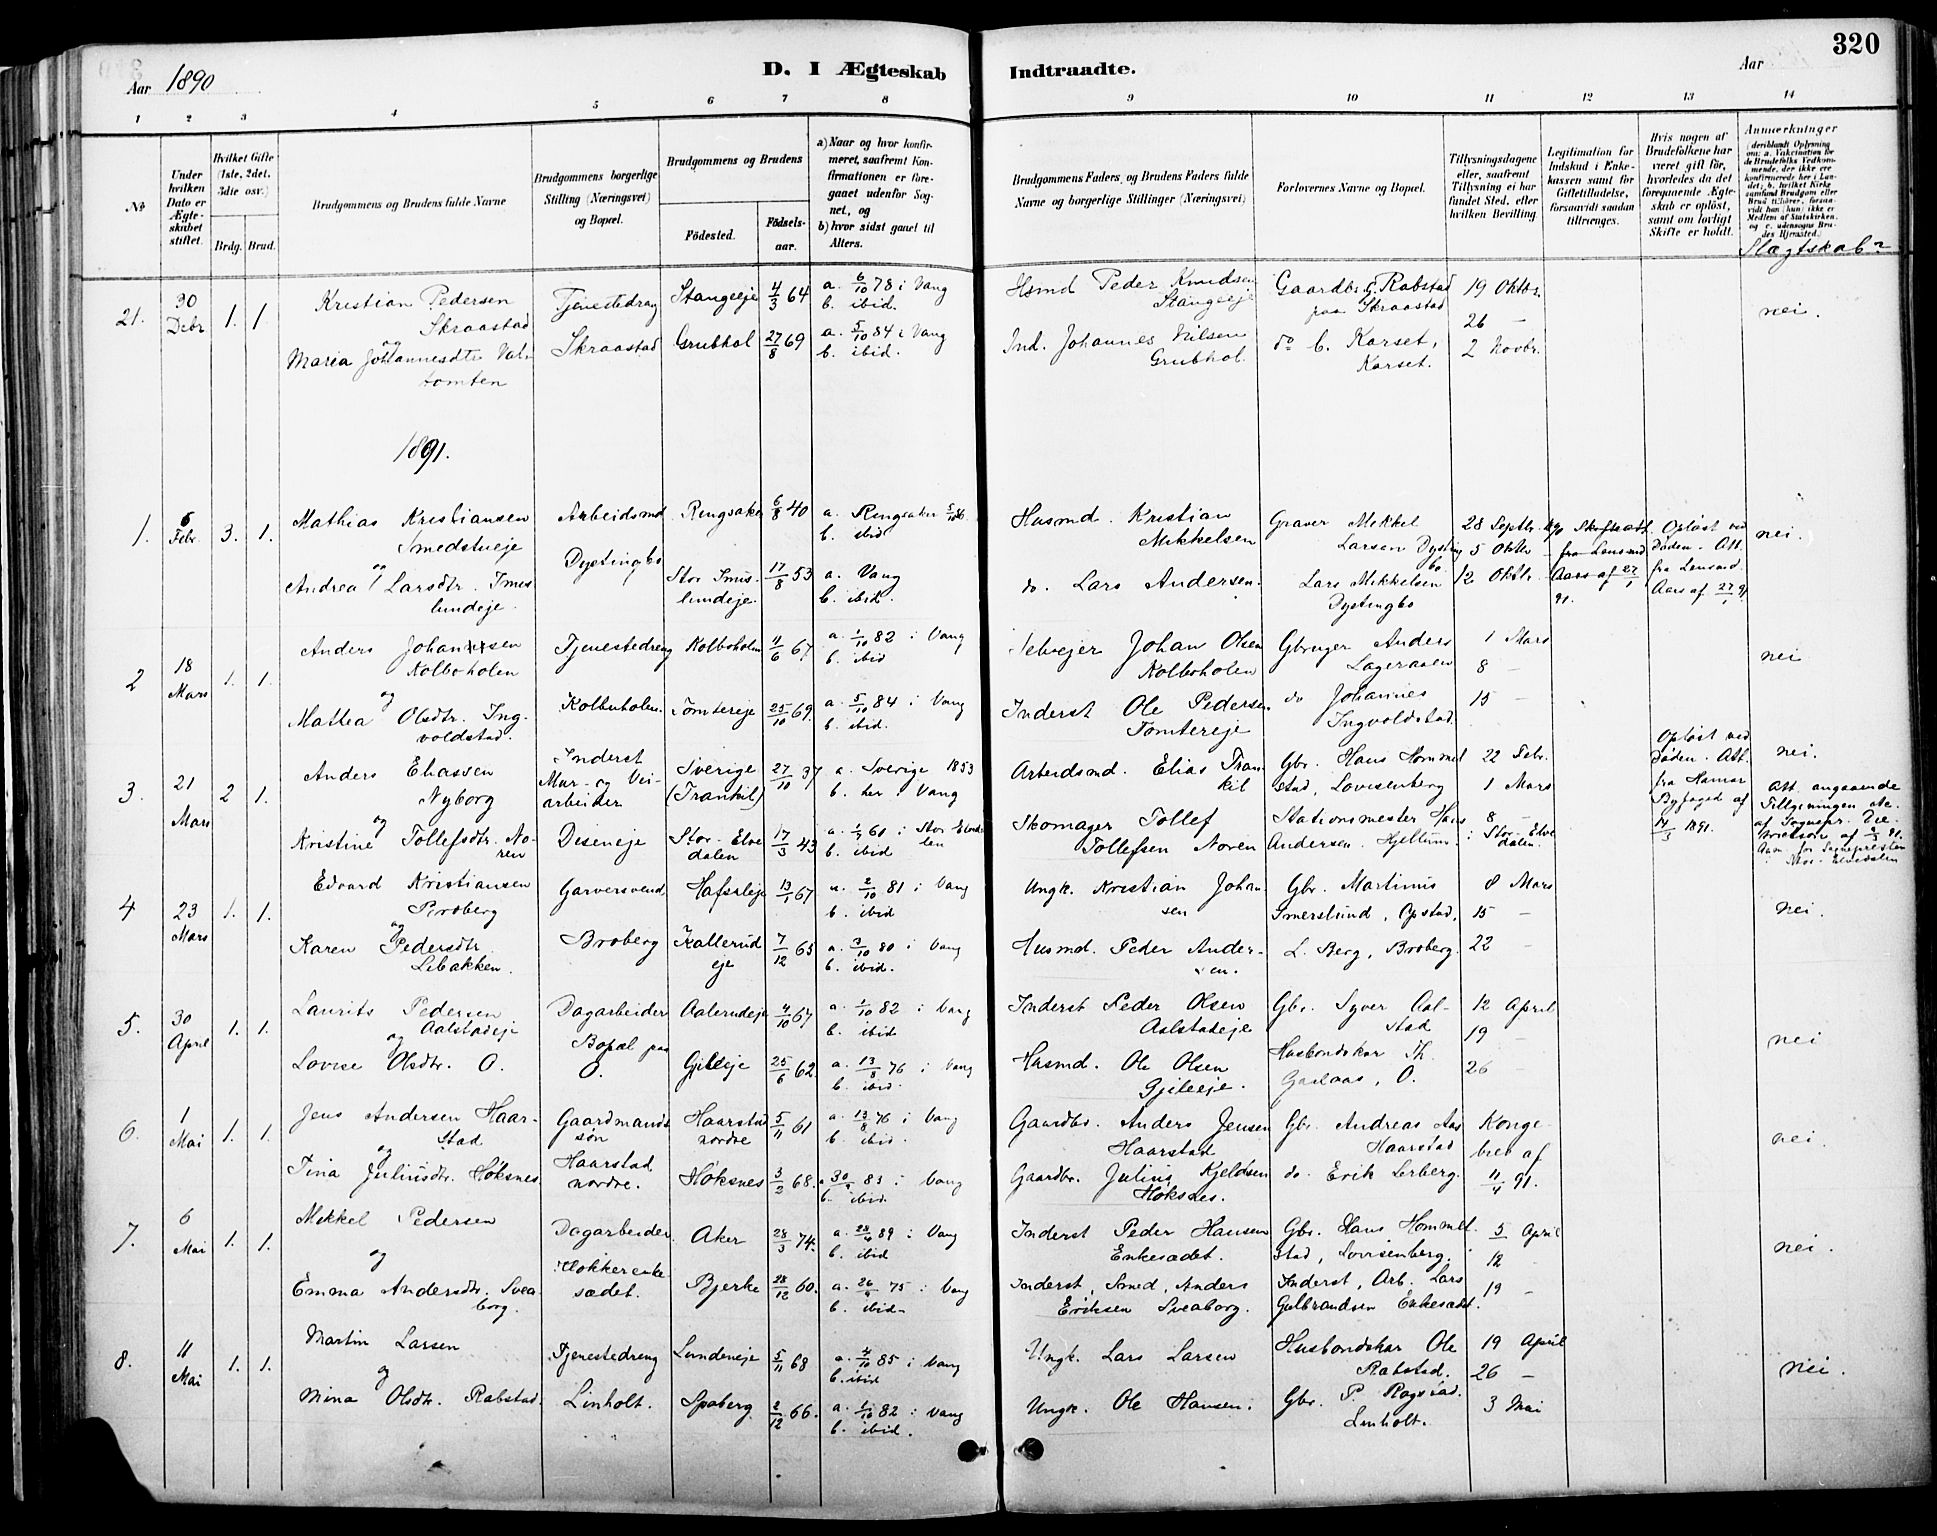 320
Aar 1890
D. I Ægteskab Indtraadte.
Aar
1 2 3 4 5 6 7 8 9 10 11 12 13 14
№
Under hvilken Dato er Ægteskabet stiftet.
Hvilket Gifte (1ste, 2det, 3die osv.)
Brdg. Brud.
Brudgommens og Brudens fulde Navne
Brudgommens borgerlige Stilling (Næringsvei) og Bopæl.
Brudgommens og Brudens
Födested.
Födselsaar.
a) Naar og hvor konfirmeret, saafremt Konfirmationen er foregaaet udenfor Sognet, og
b) hvor sidst gaaet til Alters.
Brudgommens Faders, og Brudens Faders fulde Navne og borgerlige Stillinger (Næringsvei)
Forlovernes Navne og Bopæl.
Tillysningsdagene eller, saafremt Tillysning ei har fundet Sted, efter hvilken Bevilling.
Legitimation for Indskud i Enkekassen samt for Giftetilladelse, forsaavidt saadan tiltrænges.
Hvis nogen af Brudefolkene har været gift för, hvorledes da det foregaaende Ægteskab er oplöst, samt om lovligt Skifte er holdt.
Anmærkninger (deriblandt Oplysning om: a. Vakcination for de Brudefolks Vedkommende, der ikke ere konfirmerede her i Landet; b. hvilket Kirkesamfund Brudgom eller Brud tilhörer, forsaavidt han (hun) ikke er Medlem af Statskirken, og c. udensogns Brudes Hjemsted.)
Slægtskab?
21. 30 Debr 1. 1.
Kristian Pedersen Skraastad Tjenestedreng Stangeeje 4/3 64 a. 6/10 78 i Vang b. ibid.
Hsmd Peder Knudsen Stangeeje Gaardbr. G. Rabstad paa Skraastad 19 Oktbr. 26 — nei.
og
Maria Johannesdtr Valtomten Skraastad Grubhol 27/8 69 a. 5/10 84 i Vang b. ibid.
Ind. Johannes Nilsen Grubhol. do C. Karset, Karset. 2 Novbr.
1891.
1. 6 Febr. 3. 1.
Mathias Kristiansen Smedstueje Arbeidsmd Ringsaker 6/8 40 a. Ringsaker b. ibid
Husmd. Kristian Mikkelsen Graver Mikkel Larsen Dystingbo 28 Septbr. 90 5 Oktbr nei.
og
Andrea Larsdtr. Imeslundeje. Dystingbo Stor Imislundeje. 17/8 53 a. Vang b. ibid.
do. Lars Andersen. Lars Mikkelsen Dystingbo 12 Oktbr.
Skifteatt. fra Lensmd Aars af 27/1 91.
Opløst ved Døden. Att. fra Lensmd. Aars af 27/1 91.
2 18 Mars 1. 1.
Anders Johannesen Kolboholen Tjenestedreng Kolboholen 11/6 67 a. 1/10 82 i Vang b. ibid
Selvejer Johan Olsen Kolboholen Gbruger Anders Lageraaen 1 Mars 8 — nei
og
Mathea Olsdtr. Ingvoldstad. Kolboholen. Tomtereje 25/10 69. a. 5/10 84 i Vang b. ibid.
Inderst Ole Pedersen Tomtereje do Johannes Ingvoldstad 15 —
3. 21 Mars 2 1.
Anders Eliassen Nyborg Inderst Mur- og Veiarbeider Sverige (Trankil) 27/10 37 a. Sverige 1853 b. her i Vang
Arbeidsmd. Elias Trankil Gbr. Hans Hommelstad, Lovisenberg 22 Febr. 1 Mars nei.
og
Kristine Tollefsdtr. Noren Diseneje Stor-Elvedalen 17/3 43 b. ibid
Skomager Tollef Tollefsen Noren Stationsmester Hans Andersen. Hjellum. 8 — i Stor-Elvedalen.
Opløst ved Døden. Att. fra Hamar Byfoged af 14/3 1891.
Att. angaaende Tillysningen
4 23 Mars 1. 1.
Edvard Kristiansen Broberg Garversvend Hafsaleje 13/1 67 a. 2/10 81 i Vang b. ibid
Ungk. Kristian Johansen Gbr. Martinus Imerslund, Opstad, 8 Mars 15 — nei.
og
Karen Pedersdtr. Libakken. Broberg Kallerudeje 7/12 65 a. 3/10 80 i Vang b. ibid.
Husmd. Peder Andersen. L. Berg, Broberg. 22 —
5. 30 April 1. 1.
Laurits Pedersen Aalstadeje Dagarbeider Aalerudeje 4/10 67 a. 1/10 82 i Vang b. ibid.
Inderst Peder Olsen Aalstadeje Gbr. Syver Aalstad 12 April 19 — nei
og
Lovise Olsdtr. O. Bopæl paa O. Gjileeje 25/6 62. a. 13/8 76 i Vang b. ibid.
Husmd. Ole Olsen Gjileeje. Husbondskar Th. Gaalaas, O. 26 —
6. 1 Mai 1. 1.
Jens Andersen Haarstad Gaardmandssøn Haarstad nordre 5/11 61 a. 13/8 76 i Vang b. ibid.
Gaardbr. Anders Jensen Haarstad Gbr. Andreas Aas Haarstad Kongebrev af 11/4 91. nei.
og
Tina Juliusdtr. Høksnes Haarstad nordre. Høksnes 3/2 68. a. 83 i Vang b. ibid.
Gaardbr. Julius Kjeldsen Høksnes. do. Erik Lerberg.
7. 6 Mai 1. 1.
Mikkel Pedersen Dagarbeider Aker 28/3 74. b. ibid
Inderst Peder Hansen Enkesædet. Gbr. Hans Hommelstad, Lovisenberg. 5 April 12 — nei.
og
Emma Andersdtr. Sveaborg. Flokkerenkesædet. Bjerke 28/12 60. a. 26/9 75 i Vang b. ibid.
Inderst, Smed, Anders Eriksen Sveaborg. Inderst, Arb. Lars Gulbrandsen Enkesædet. 19 —
8. 11 Mai 1. 1.
Martin Larsen Tjenestedreng Lundeneje 5/11 68 a. 4/10 85 i Vang b. ibid
Ungk. Lars Larsen Husbondskar Ole Rabstad. 19 April 26 — nei.
og
Mina Olsdtr. Rabstad. Linholt. Spaberg 2/12 66. a. 1/10 82 i Vang b. ibid.
Ungk. Ole Hansen. Gbr. P. Rogstad. Linholt. 3 Mai